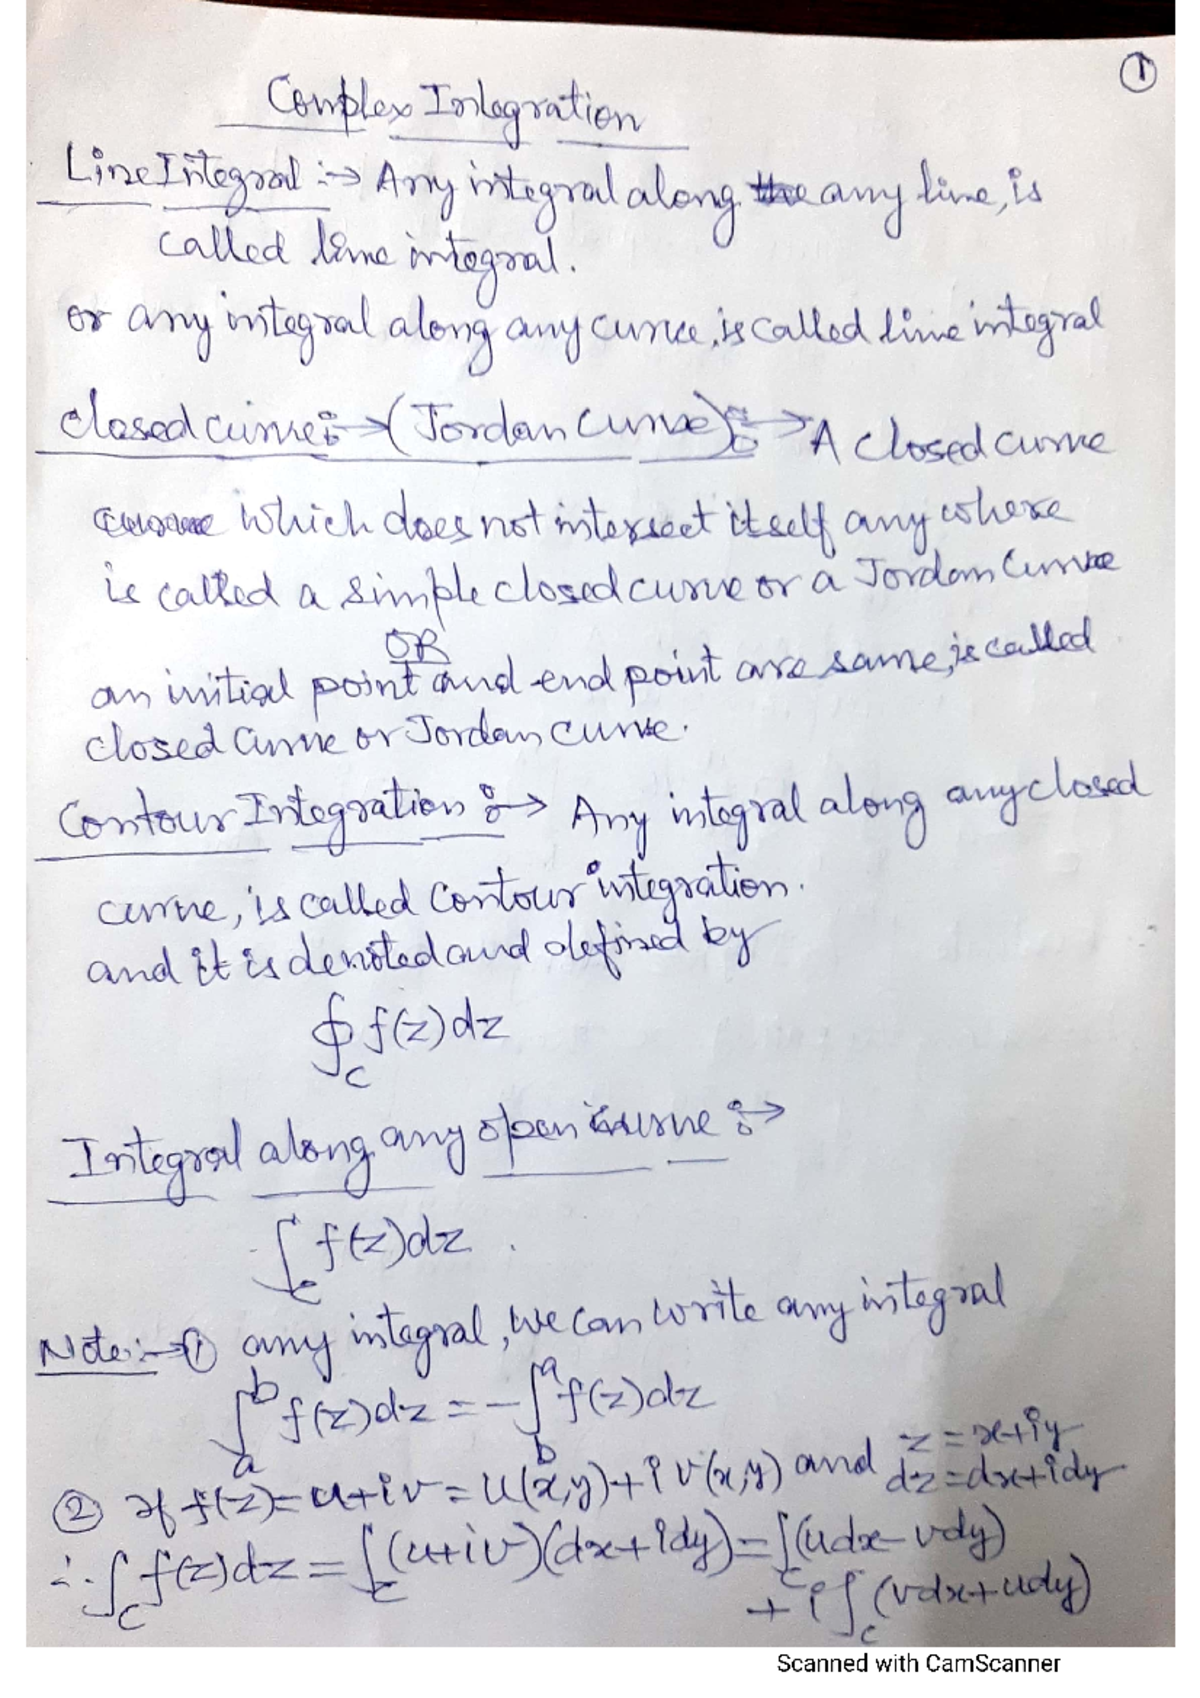 ①
Complex Integration
Line Integral :→ Any integral along any line, is
called line integral.
or any integral along any curve, is called line integral
Closed curve :→ (Jordan Curve) :→ A closed curve
which does not intersect itself anywhere
is called a simple closed curve or a Jordan Curve
OR
an initial point and end point are same, is called
closed curve or Jordan curve.
Contour Integration :→ Any integral along any closed
curve, is called Contour integration.
and it is denoted and defined by
∮_C f(z)dz
Integral along any open curve :→
∫_C f(z)dz.
Note:→ ① any integral, we can write any integral
∫_a^b f(z)dz = -∫_b^a f(z)dz
② If f(z) = u+iv = u(x,y)+iv(x,y) and z = x+iy
dz = dx+idy
∴ ∫_C f(z)dz = ∫_C (u+iv)(dx+idy) = ∫_C (udx-vdy)
+ i∫_C (vdx+udy)
Scanned with CamScanner